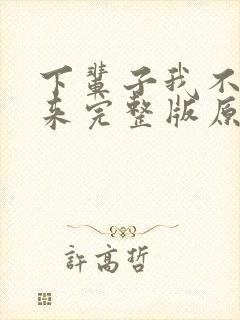 下輩子我不
来完整版原
許高哲